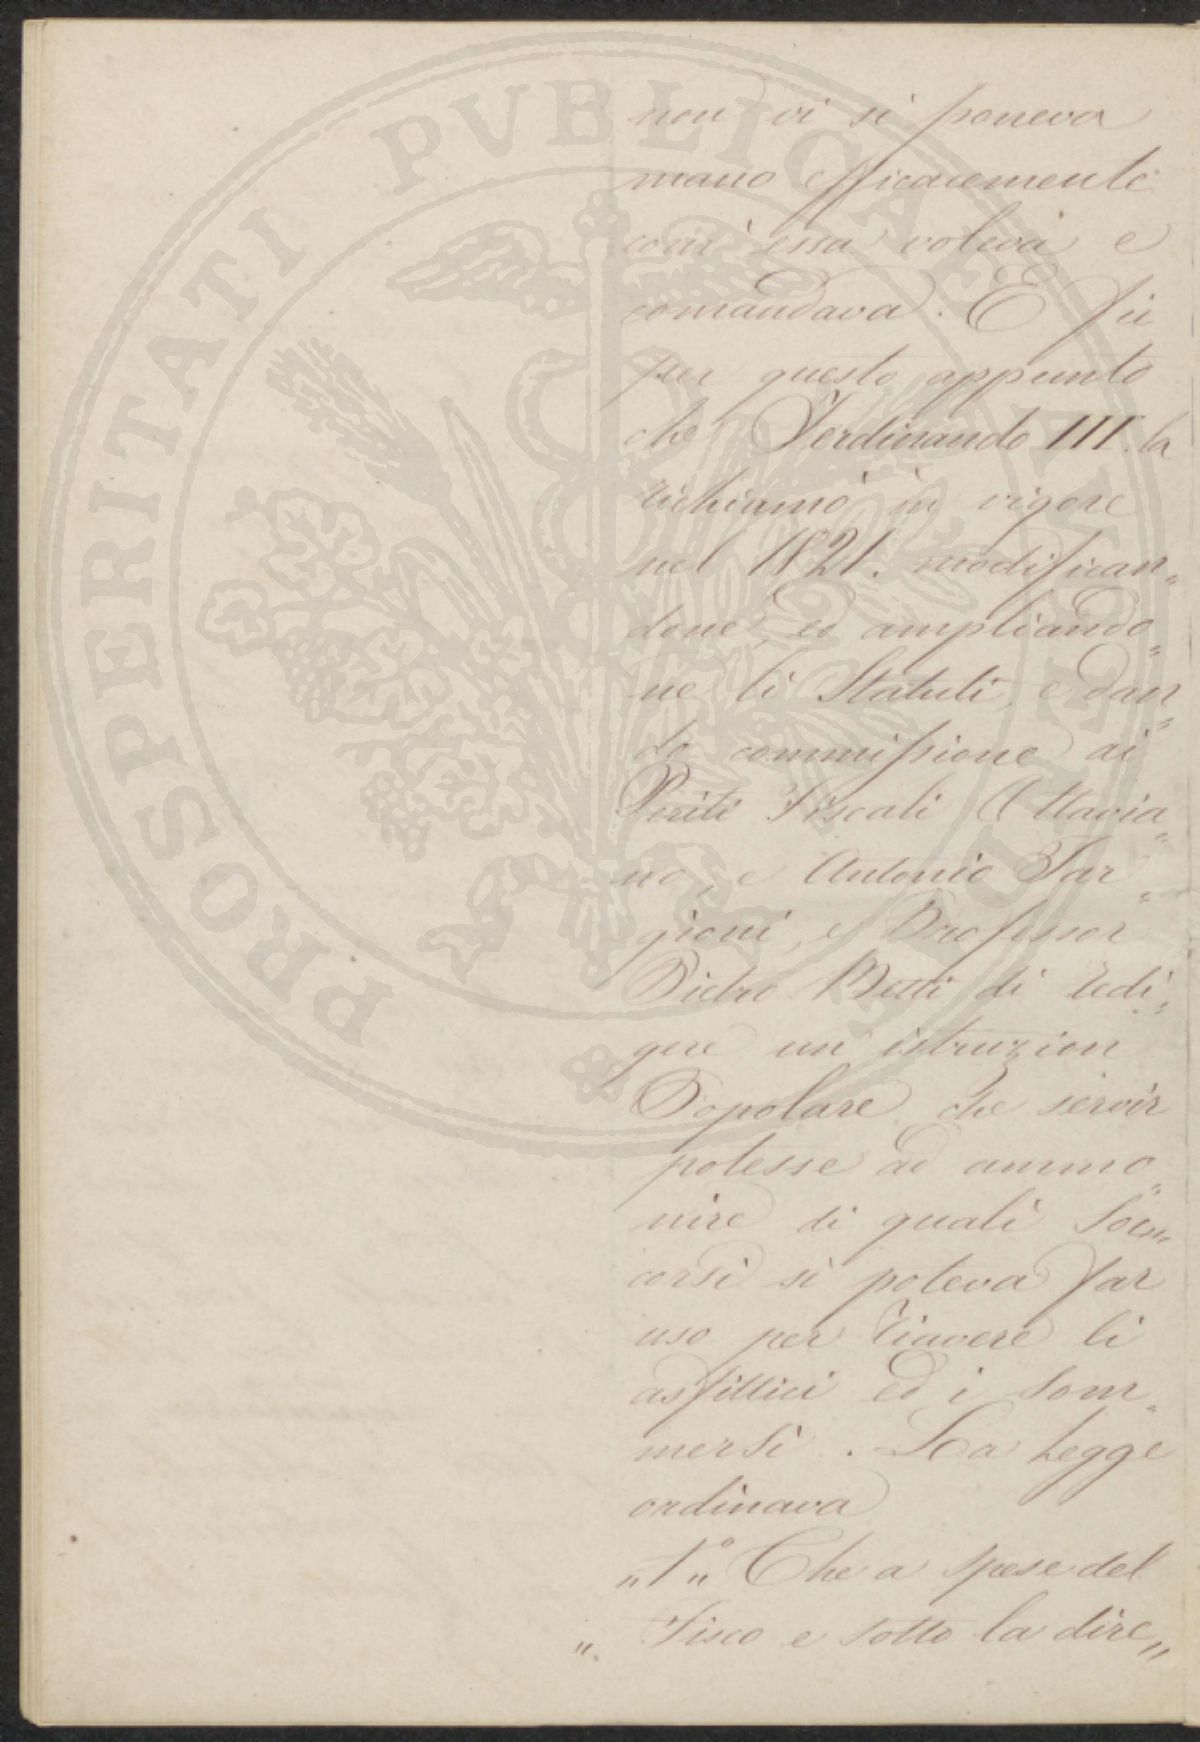 non vi si poneva
mano efficacemente
com'essa voleva e
comandava. E fu
per questo appunto
che Ferdinando III. la
richiamò in vigore
nel 1821. modifican„
done, ed ampliando„
ne li Statuti, e dan„
do commissione ai
Periti Fiscali Ottavia„
no, e Antonio Tar„
gioni, e Professor
Pietro Betti di redi„
gere un'istruzion
Popolare che servir
potesse ad ammo„
nire di quali Soc„
corsi si poteva far
uso per riavere li
asfittici ed i Som„
mersi. La Legge
ordinava
„1.° „ Che a spese del
„ Fisco e sotto la dire„
PROSPERITATI PVBLICAE AVGENDAE